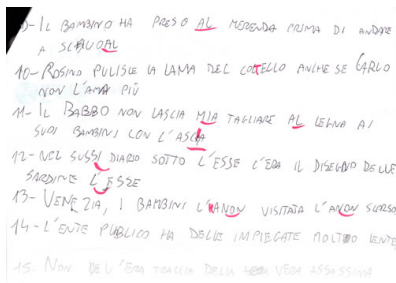 9- IL BAMBINO HA PRESO AL MERENDA PRIMA DI ANDARE
A SCUOAL
10- ROSINO PULISCE LA LAMA DEL COLTELLO ANCHE SE CARLO
NON L'AMA PIÙ
11- IL BABBO NON LASCIA MIA TAGLIARE AL LEGNA AI
SUOI BAMBINI CON L'ASCIA
12- NEL SUSSIDIARIO SOTTO L'ESSE C'ERA IL DISEGNO DELLE
SARDINE L'ESSE
13- VENEZIA, I BAMBINI L'ANON VISITATA L'ANON SCORSO
14- L'ENTE PUBLICO HA DELLE IMPIEGATE MOLTO LENTE
15- NON TRACCIA DELLA VERA ASSASSINA